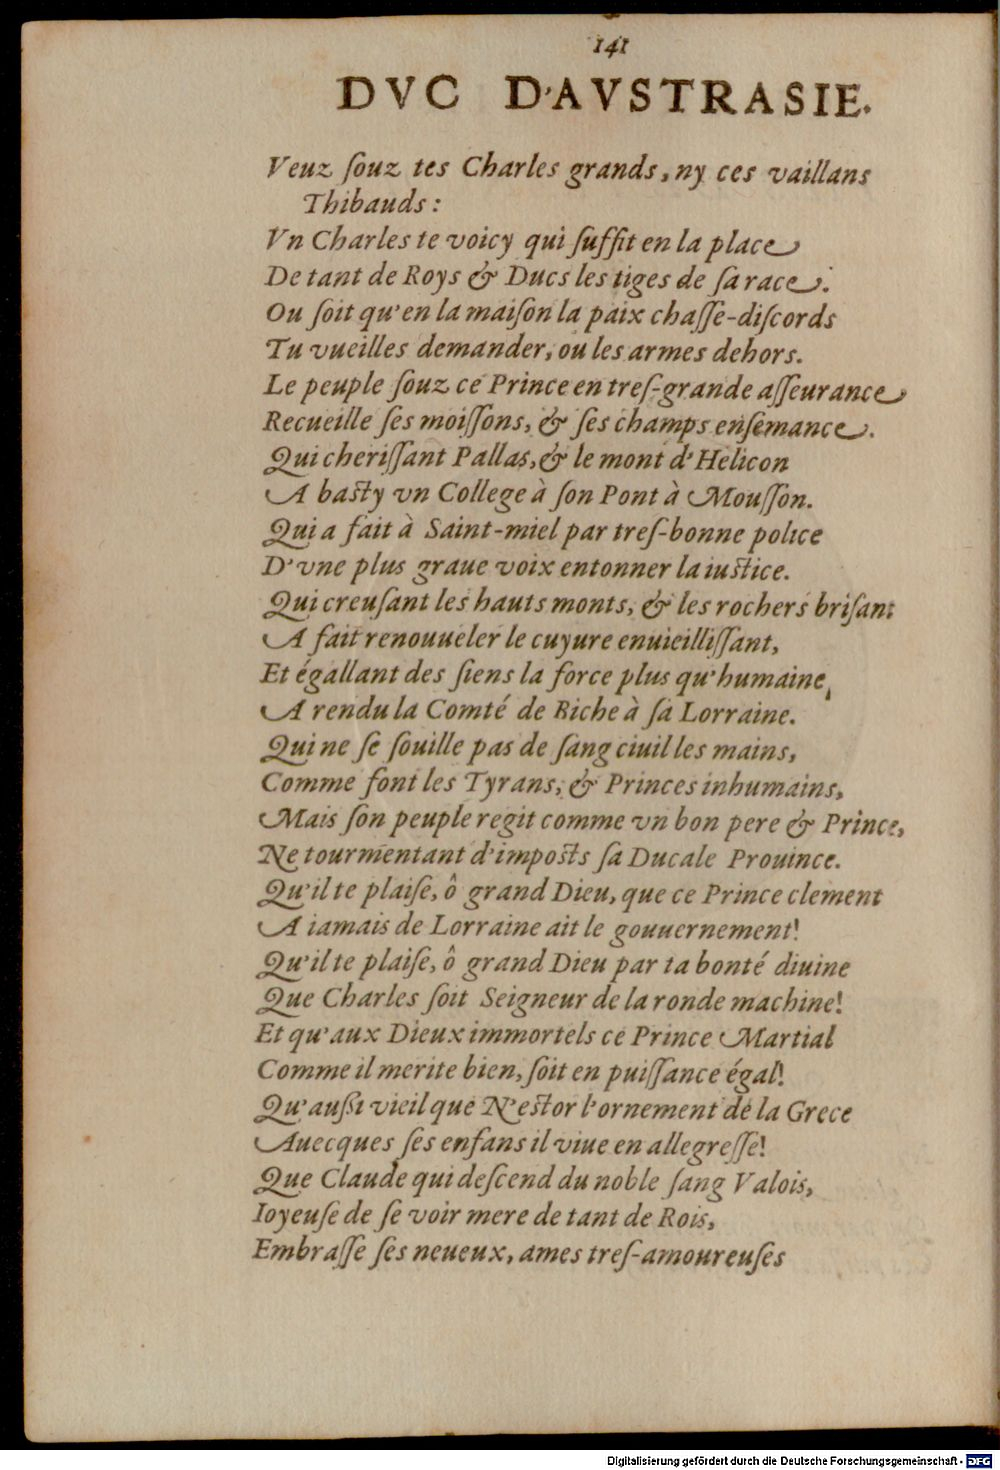 141
DVC D'AVSTRASIE.
Veuz ſouz tes Charles grands, ny ces vaillans
Thibauds:
Vn Charles te voicy qui ſuffit en la place
De tant de Roys & Ducs les tiges de ſa race.
Ou ſoit qu'en la maiſon la paix chaſſe-diſcords
Tu vueilles demander, ou les armes dehors.
Le peuple ſouz ce Prince en treſ-grande aſſeurance
Recueille ſes moiſſons, & ſes champs enſemance.
Qui cheriſſant Pallas, & le mont d'Helicon
A baſty vn College à ſon Pont à Mouſſon.
Qui a fait à Saint-miel par treſ-bonne police
D'vne plus graue voix entonner la iuſtice.
Qui creuſant les hauts monts, & les rochers briſant
A fait renouueler le cuyure enuieilliſſant,
Et égallant des ſiens la force plus qu'humaine,
A rendu la Comté de Riche à ſa Lorraine.
Qui ne ſe ſouille pas de ſang ciuil les mains,
Comme font les Tyrans, & Princes inhumains,
Mais ſon peuple regit comme vn bon pere & Prince,
Ne tourmentant d'impoſts ſa Ducale Prouince.
Qu'il te plaiſe, ô grand Dieu, que ce Prince clement
A iamais de Lorraine ait le gouuernement!
Qu'il te plaiſe, ô grand Dieu par ta bonté diuine
Que Charles ſoit Seigneur de la ronde machine!
Et qu'aux Dieux immortels ce Prince Martial
Comme il merite bien, ſoit en puiſſance égal!
Qu'auſsi vieil que Neſtor l'ornement de la Grece
Auecques ſes enfans il viue en allegreſſe!
Que Claude qui deſcend du noble ſang Valois,
Ioyeuſe de ſe voir mere de tant de Rois,
Embraſſe ſes neueux, ames treſ-amoureuſes
Digitalisierung gefördert durch die Deutsche Forschungsgemeinschaft - DFG